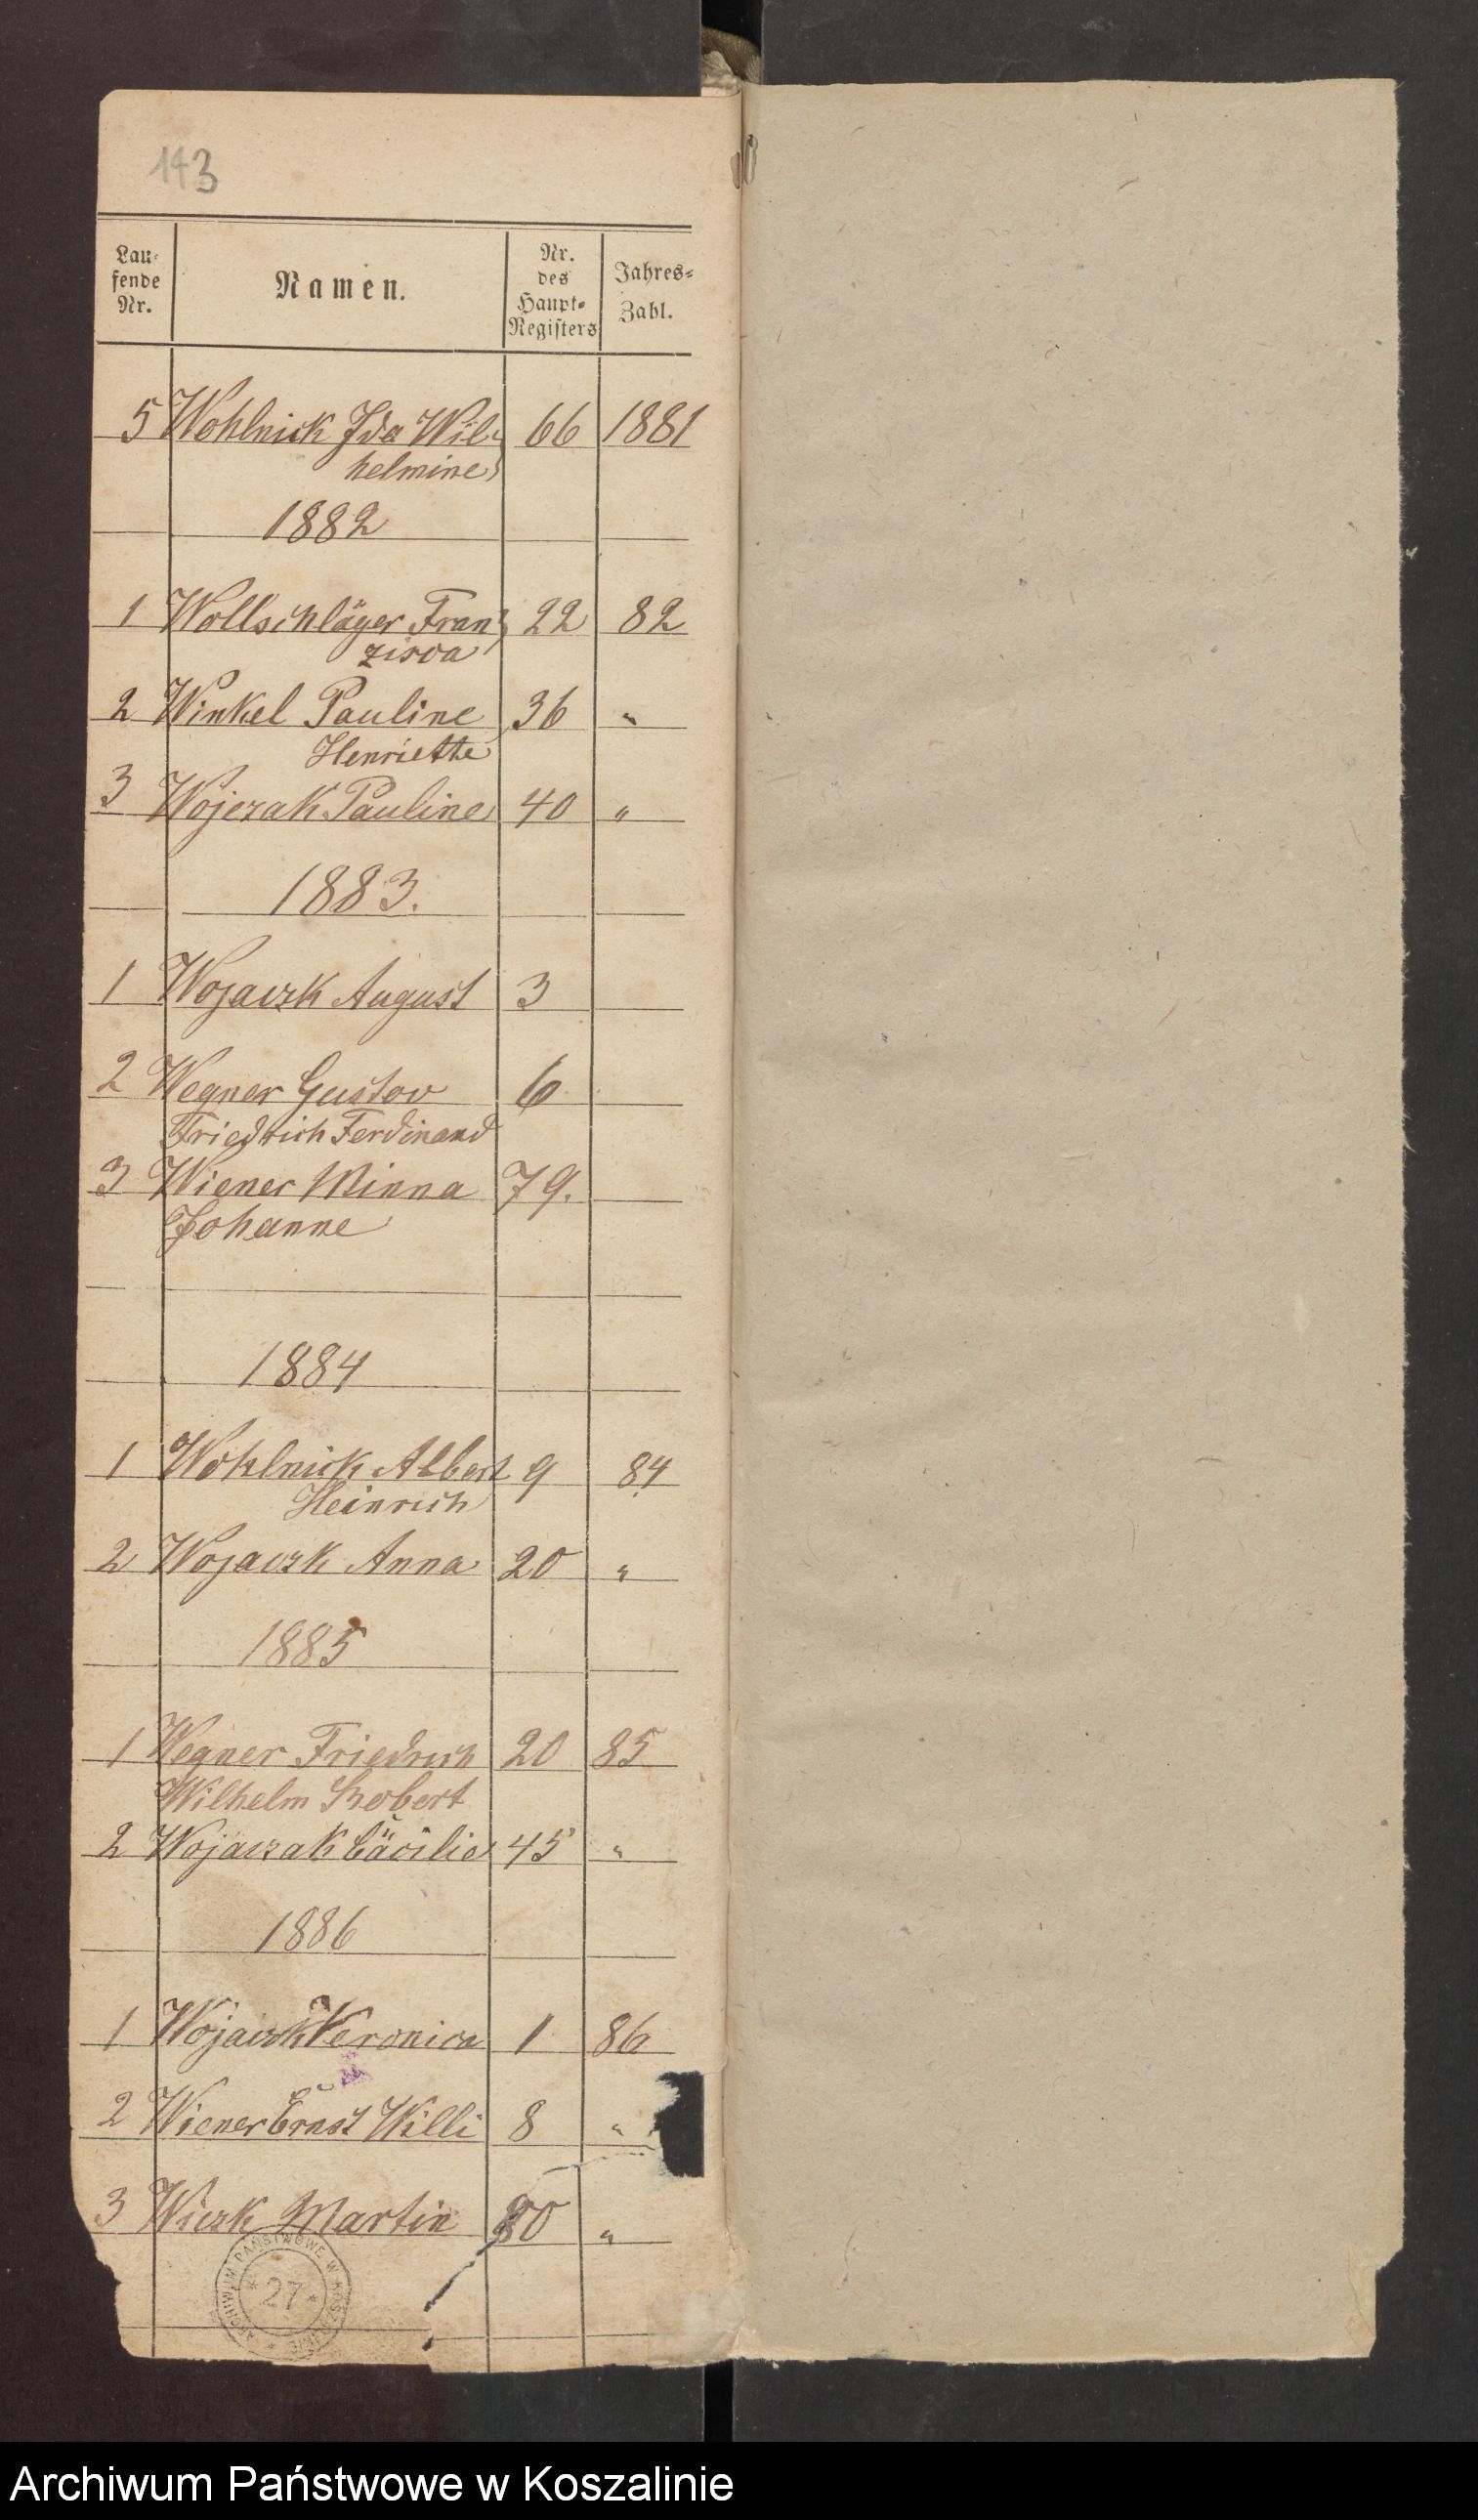 143
Lau-
fende
Nr.
Namen.
Nr.
des
Haupt-
Registers
Jahres-
Zahl.
5 Wohlnick Ida Wil- 66 1881
helmine
1882
1 Wollschläger Fran 22 82
zisca
2 Winkel Pauline 36 "
Henriette
3 Wojczak Pauline 40 "
1883.
1 Wojaczk August 3
2 Wegner Gustav 6
Friedrich Ferdinand
3 Wiener Minna 79.
Johanne
1884
1 Wohlnick Albert 9 84
Heinrich
2 Wojaczk Anna 20 "
1885
1 Wegner Friedrich 20 85
Wilhelm Robert
2 Wojaczak Cäcilie 45 "
1886
1 Wojaczk Veronica 1 86
2 Wiener Ernst Willi 8 "
3 Wiczk Martin 80 "
ARCHIWUM PAŃSTWOWE W KOSZALINIE
* 27 *
Archiwum Państwowe w Koszalinie